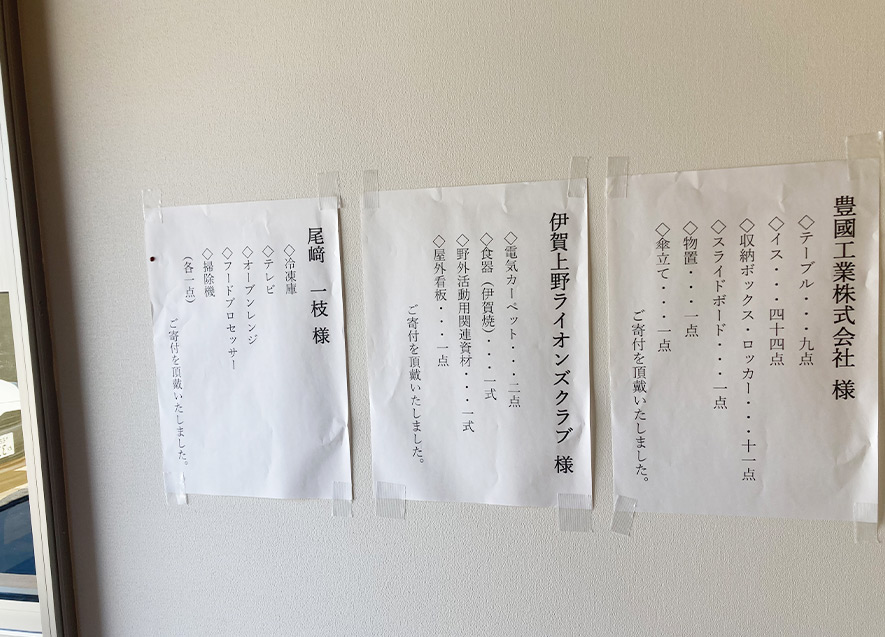 豊國工業株式会社 様
◇テーブル・・・九点
◇イス・・・四十四点
◇収納ボックス・ロッカー・・・十一点
◇スライドボード・・・一点
◇物置・・・一点
◇傘立て・・・一点
ご寄付を頂戴いたしました。
伊賀上野ライオンズクラブ 様
◇電気カーペット・・・二点
◇食器（伊賀焼）・・・一式
◇野外活動用関連資材・・・一式
◇屋外看板・・・一点
ご寄付を頂戴いたしました。
尾﨑 一枝 様
◇冷凍庫
◇テレビ
◇オーブンレンジ
◇フードプロセッサー
◇掃除機
（各一点）
ご寄付を頂戴いたしました。